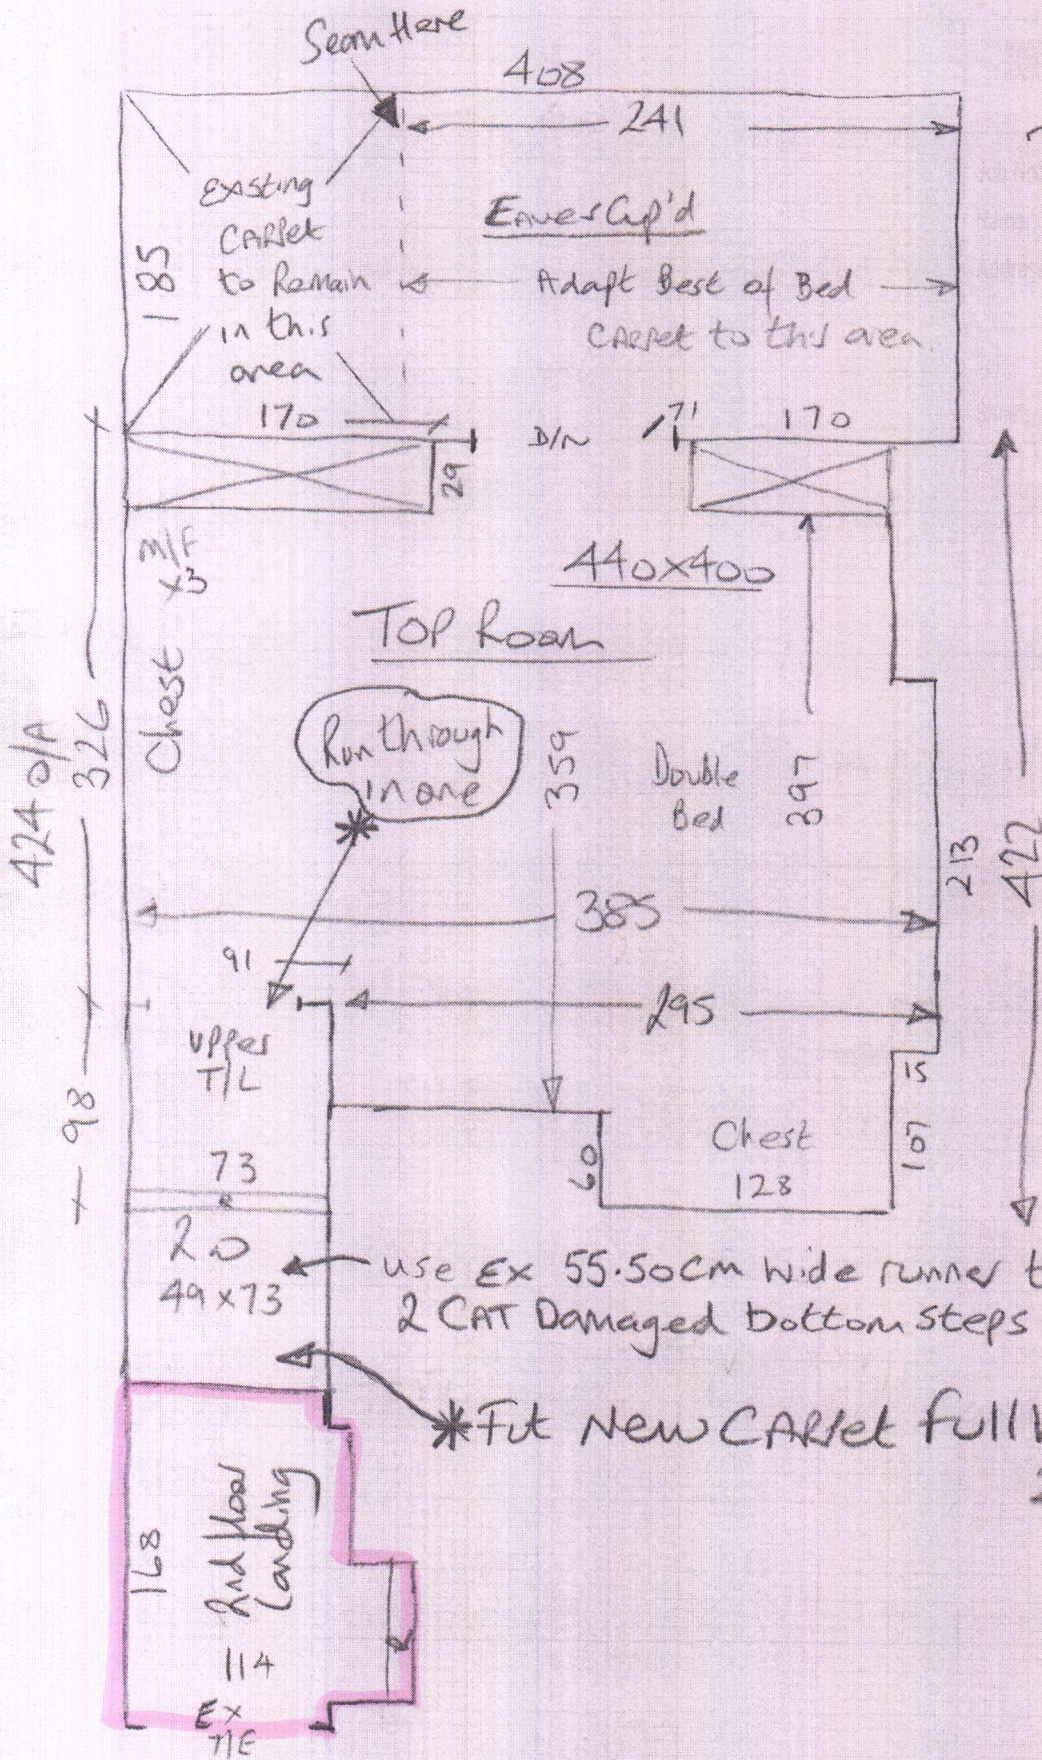 Seam Here
408
241
Existing
CARPet
to Remain
in this
area
185
Eaves Cup'd
Adapt Best of Bed
CARPet to this area.
170
D/N
71
170
29
M/F
x3
Chest
440x400
TOP Room
Run through
in one
359
Double
Bed
397
213
422
424 O/A
326
98
385
91
295
upper
T/L
15
107
60
Chest
128
73
R
20
49x73
use Ex 55.50cm wide runner t
2 CAT Damaged bottom steps
*Fit New CARPet full
2nd floor
Landing
168
114
R
Ex
T/E